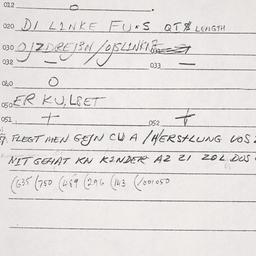 012 0
020 DI LINKE FUS QT$ LENGTH
030 OJZDREJEN /OJSLINKN
032 — 033 —
040 0
050 ER KULGET
051 + 052 +
FLEGT MEN GEJN CU A /HERSTLUNG VOS
NIT GEHAT KN KINDER AZ ZI ZOL DOS
(635 (750 (489 (296 (143 (/001050